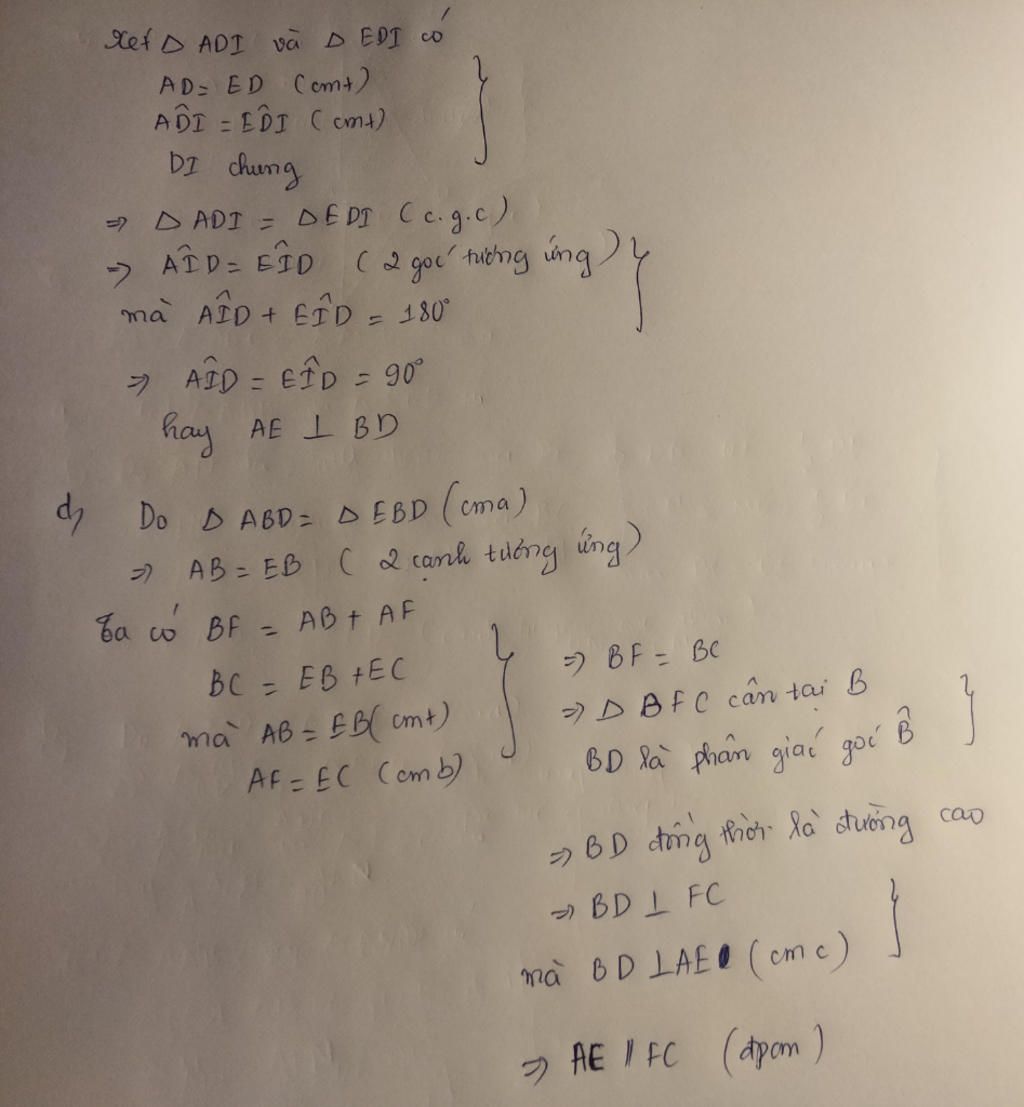 Xét Δ ADI và Δ EDI có
AD = ED (cmt)
AD̂I = ED̂I (cmt)
DI chung
⇒ Δ ADI = Δ EDI (c.g.c)
⇒ AÎD = EÎD (2 góc tương ứng)
mà AÎD + EÎD = 180°
⇒ AÎD = EÎD = 90°
hay AE ⊥ BD
d, Do Δ ABD = Δ EBD (cma)
⇒ AB = EB (2 cạnh tương ứng)
Ta có BF = AB + AF
BC = EB + EC
mà AB = EB (cmt)
AF = EC (cmb)
⇒ BF = BC
⇒ Δ BFC cân tại B
BD là phân giác góc B̂
⇒ BD đồng thời là đường cao
⇒ BD ⊥ FC
mà BD ⊥ AE (cmc)
⇒ AE // FC (đpcm)